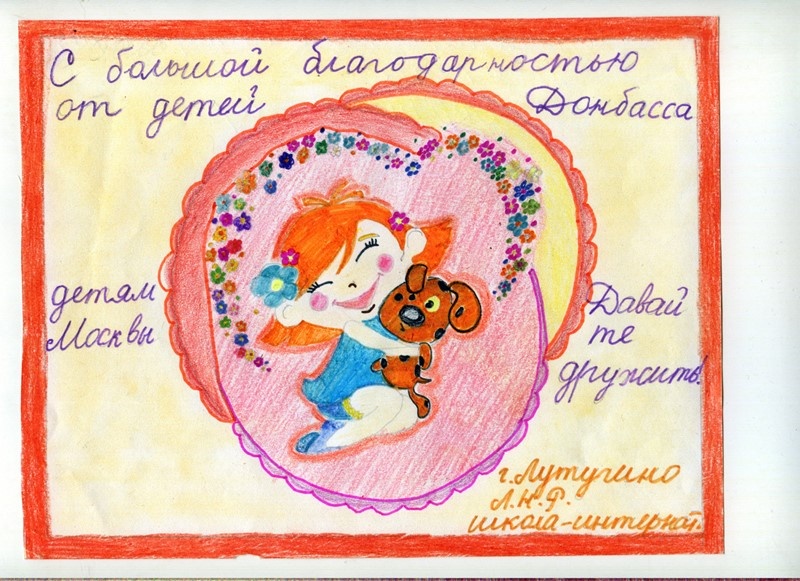 С большой благодарностью
от детей Донбасса
детям
Москвы
Давай
те
дружить!
г. Лутугино
Л.Н.Р.
школа-интернат.